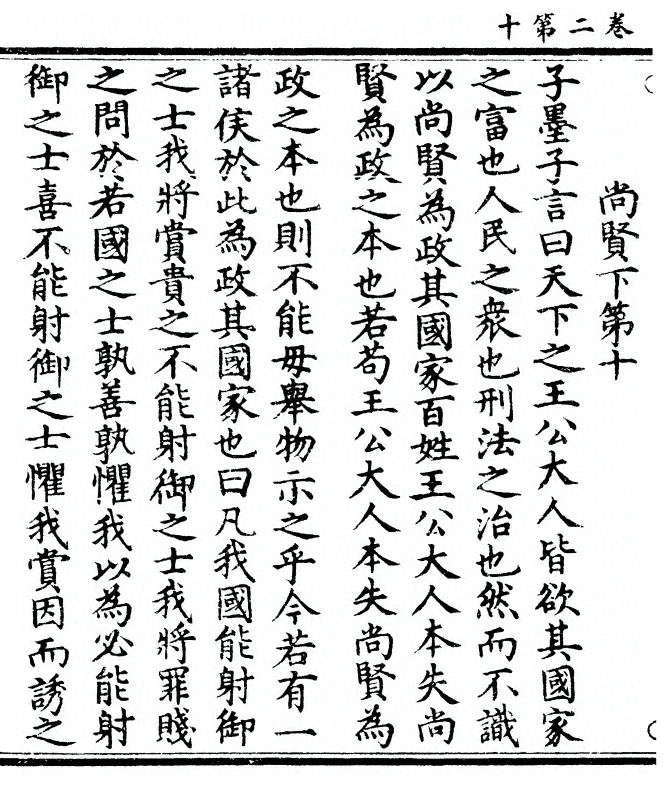 卷二第十
尚賢下第十
子墨子言曰天下之王公大人皆欲其國家
之富也人民之衆也刑法之治也然而不識
以尚賢為政其國家百姓王公大人本失尚
賢為政之本也若苟王公大人本失尚賢為
政之本也則不能毋舉物示之乎今若有一
諸侯於此為政其國家也曰凡我國能射御
之士我將賞貴之不能射御之士我將罪賤
之問於若國之士孰善孰懼我以為必能射
御之士喜不能射御之士懼我賞因而誘之